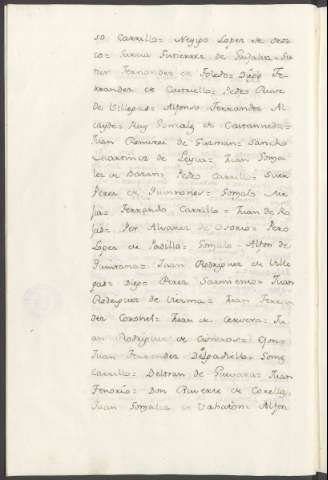 so Carrillo = Lopez de
co = Garcia Gutierrez de = Gu
tier Fernandez de Toledo = Diego Fe
rrandez de Castriello = Pedro Ruiz
de Villegas = Alfonso Ferrandez Al
cayde = Ruy Gonzalez de Castanneda =
Juan Ramirez de Guzman = Sancho
Martinez de Leyva = Juan Gonza
lez de Bazan = Pedro Carrillo = Suer
Perez de Quinnones = Gonzalo Me
jia = Ferrando Carrillo = Juan de Ro
jas = Per Alvarez de Osorio = Pero
Lopez de Padilla = Gonzalo Alfon de
Quintana = Juan Rodriguez de Ville
gas = Diego Perez Sarmiento = Juan
Rodriguez de = Juan Ferran
dez Coronel = Juan de Cervera = Ju
an Rodriguez de Cisneros =
Juan Ferrandez Delgadiello = Gomez
Carrillo = Beltran de Guevara = Juan
Tenorio = Don de Corella
Juan Gonzalez de Alfon